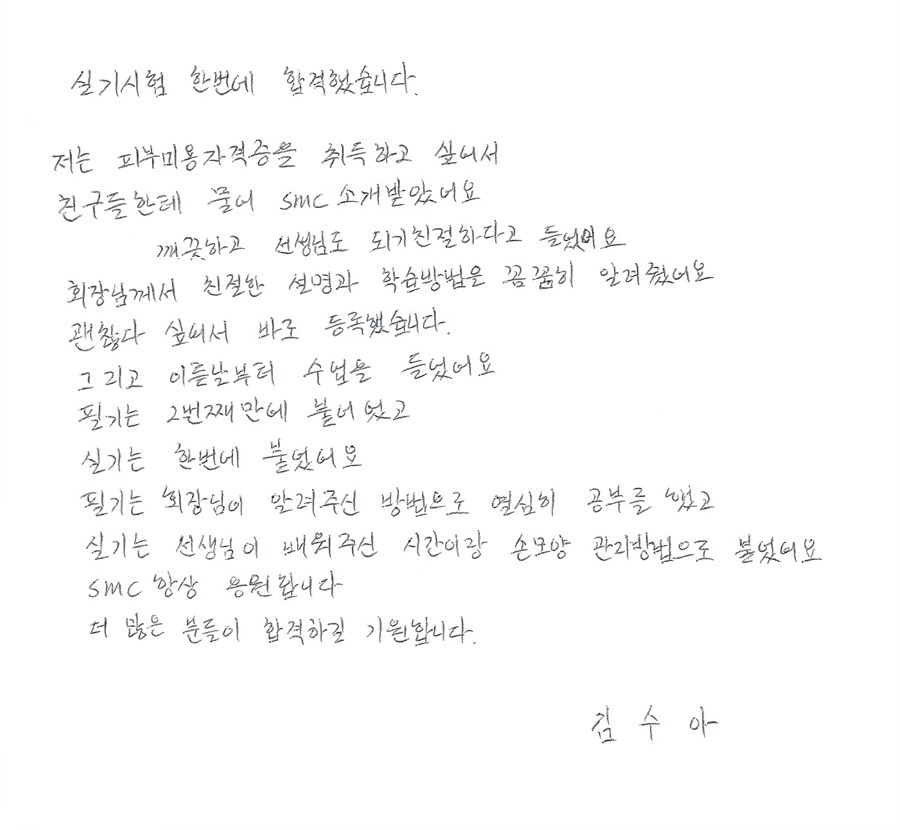 실기시험 한번에 합격했습니다.
저는 피부미용자격증을 취득하고 싶어서
친구들한테 물어 smc 소개받았어요
깨끗하고 선생님도 되기친절하다고 들었어요
회장님께서 친절한 설명과 학습방법을 꼼꼼히 알려줬어요
괜찮다 싶어서 바로 등록했습니다.
그리고 이튿날부터 수업을 들었어요
필기는 2번째만에 붙어었고
실기는 한번에 붙었어요
필기는 회장님이 알려주신 방법으로 열심히 공부를 했고
실기는 선생님이 배워주신 시간이랑 손모양 관리방법으로 붙었어요
smc 항상 응원합니다
더 많은 분들이 합격하길 기원합니다.
김수아